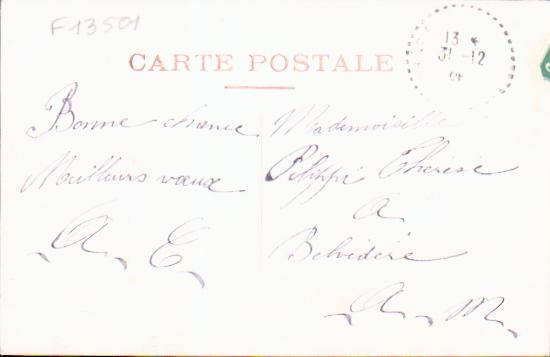 F 13501
CARTE POSTALE
13
31-12
Bonne chance
Meilleurs vœux
A. E.
Mademoiselle
Philippi Thérèse
A
Belvédère
A. M.